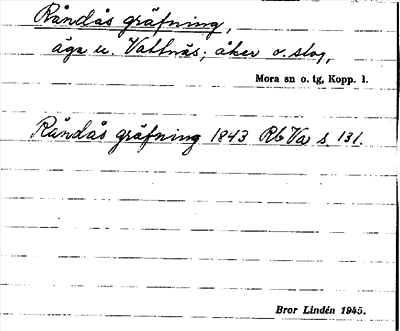 Råndås gräfning,
äga u. Vattnäs; åker o. slog,
Mora sn o. tg, Kopp. l.
Råndås gräfning 1843 Rb Va s 131.
Bror Lindén 1945.